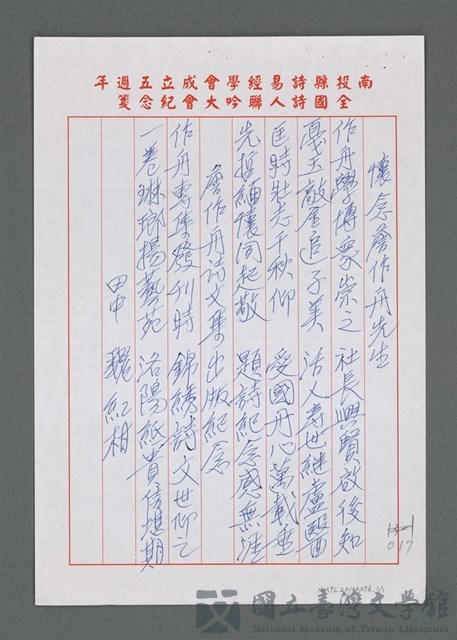 南投縣詩易經學會成立五週年
全國詩人聯吟大會紀念箋
懷念詹作舟先生
作舟學博眾崇之 社長興賢啟後知
戛玉敲金追子美 活人壽世繼盧醫
匡時壯志千秋仰 愛國丹心萬載垂
先哲緬懷同起敬 題詩紀念感無涯
詹作舟詩文集出版紀念
作舟專集發刊時 錦綉詩文世仰之
一卷琳瑯揚藝苑 洛陽紙貴信堪期
田中 魏紅柑
017
NMTL20110276
國立臺灣文學館
National Museum of Taiwan Literature